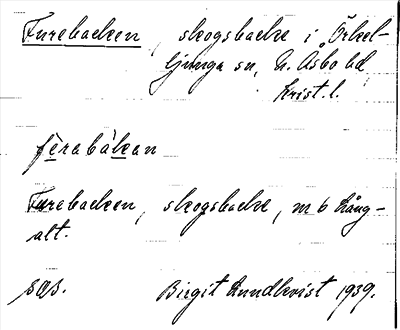 Furebacken, skogsbacke i Örkel-
ljunga sn, N. Åsbo hd
Krist. l.
fèrabàkan
Furebacken, skogsbacke, m 6 Lång-
alt.
sas. Birgit Lundkvist 1939.